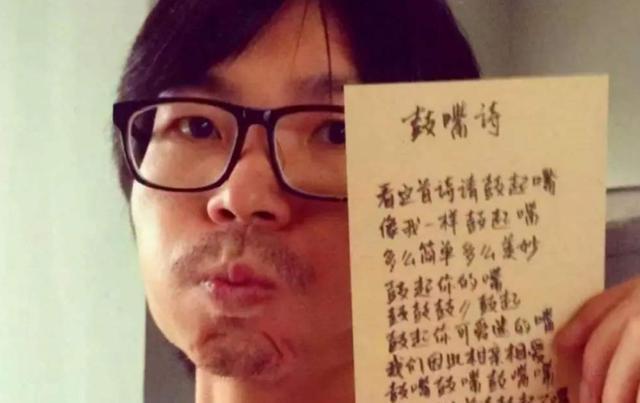 鼓嘴诗
看这首诗请鼓起嘴
像我一样鼓起嘴
多么简单多么美妙
鼓起你的嘴
鼓鼓鼓//鼓起
鼓起你可爱的嘴
我们因此相亲相爱
鼓嘴鼓嘴鼓嘴嘴